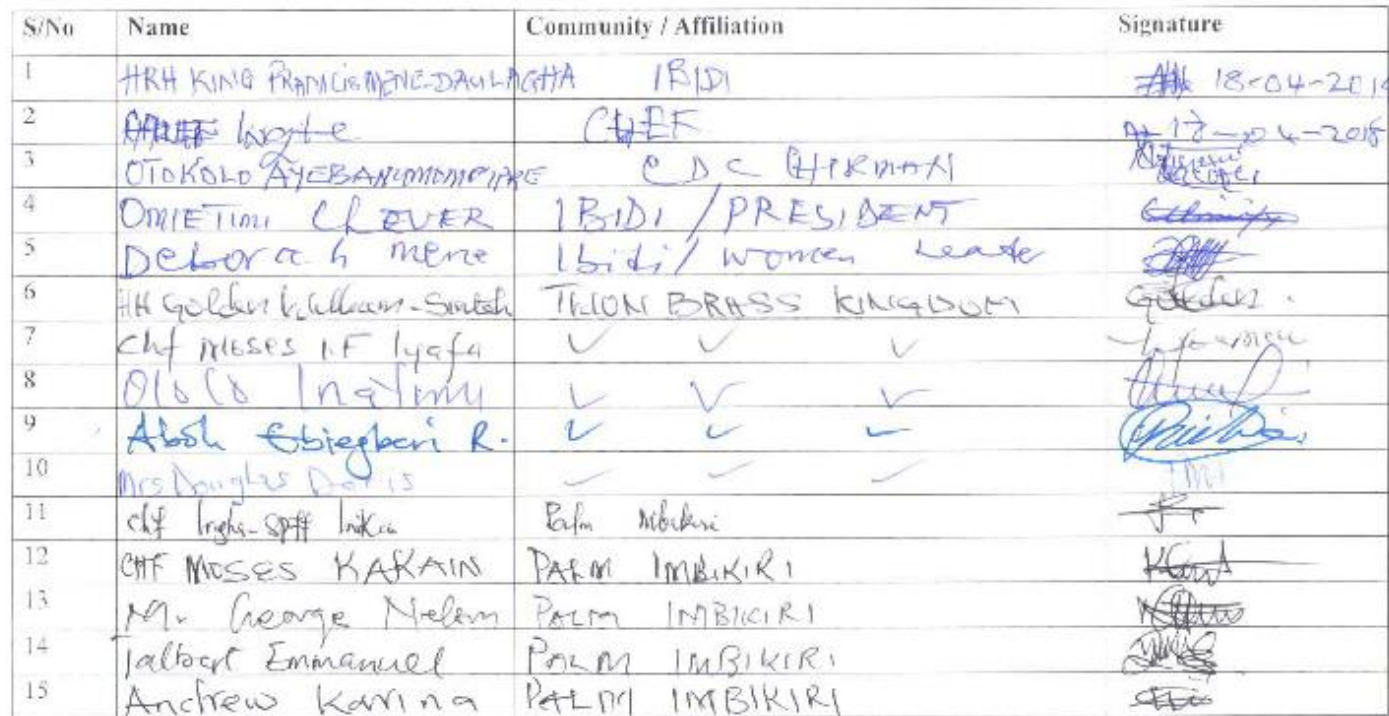 S/No Name Community / Affiliation Signature
1 HRH KING FRANCIS MENE-DAULAGHA IBIDI 18-04-201
2 CHIEF 18-04-2018
3 OTOKOLO CDC CHIRMAN
4 OMIETIMI CLEVER IBIDI / PRESIDENT
5 Deborah mene Ibidi / women Leader
6 HH Golden William-Smith TWON BRASS KINGDOM Golden.
7 Chf MOSES I.F Iyafa ✓ ✓ ✓
8 Ololo Inatimi ✓ ✓ ✓
9 Aboh Ebiegberi R. ✓ ✓ ✓
10 Mrs Douglas Doris ✓ ✓ ✓
11 Chf Palm Mbikiri
12 CHF MOSES KARAIN PALM IMBIKIRI
13 Mr. George Nelson PALM IMBIKIRI
14 Talbert Emmanuel PALM IMBIKIRI
15 Andrew Karina PALM IMBIKIRI